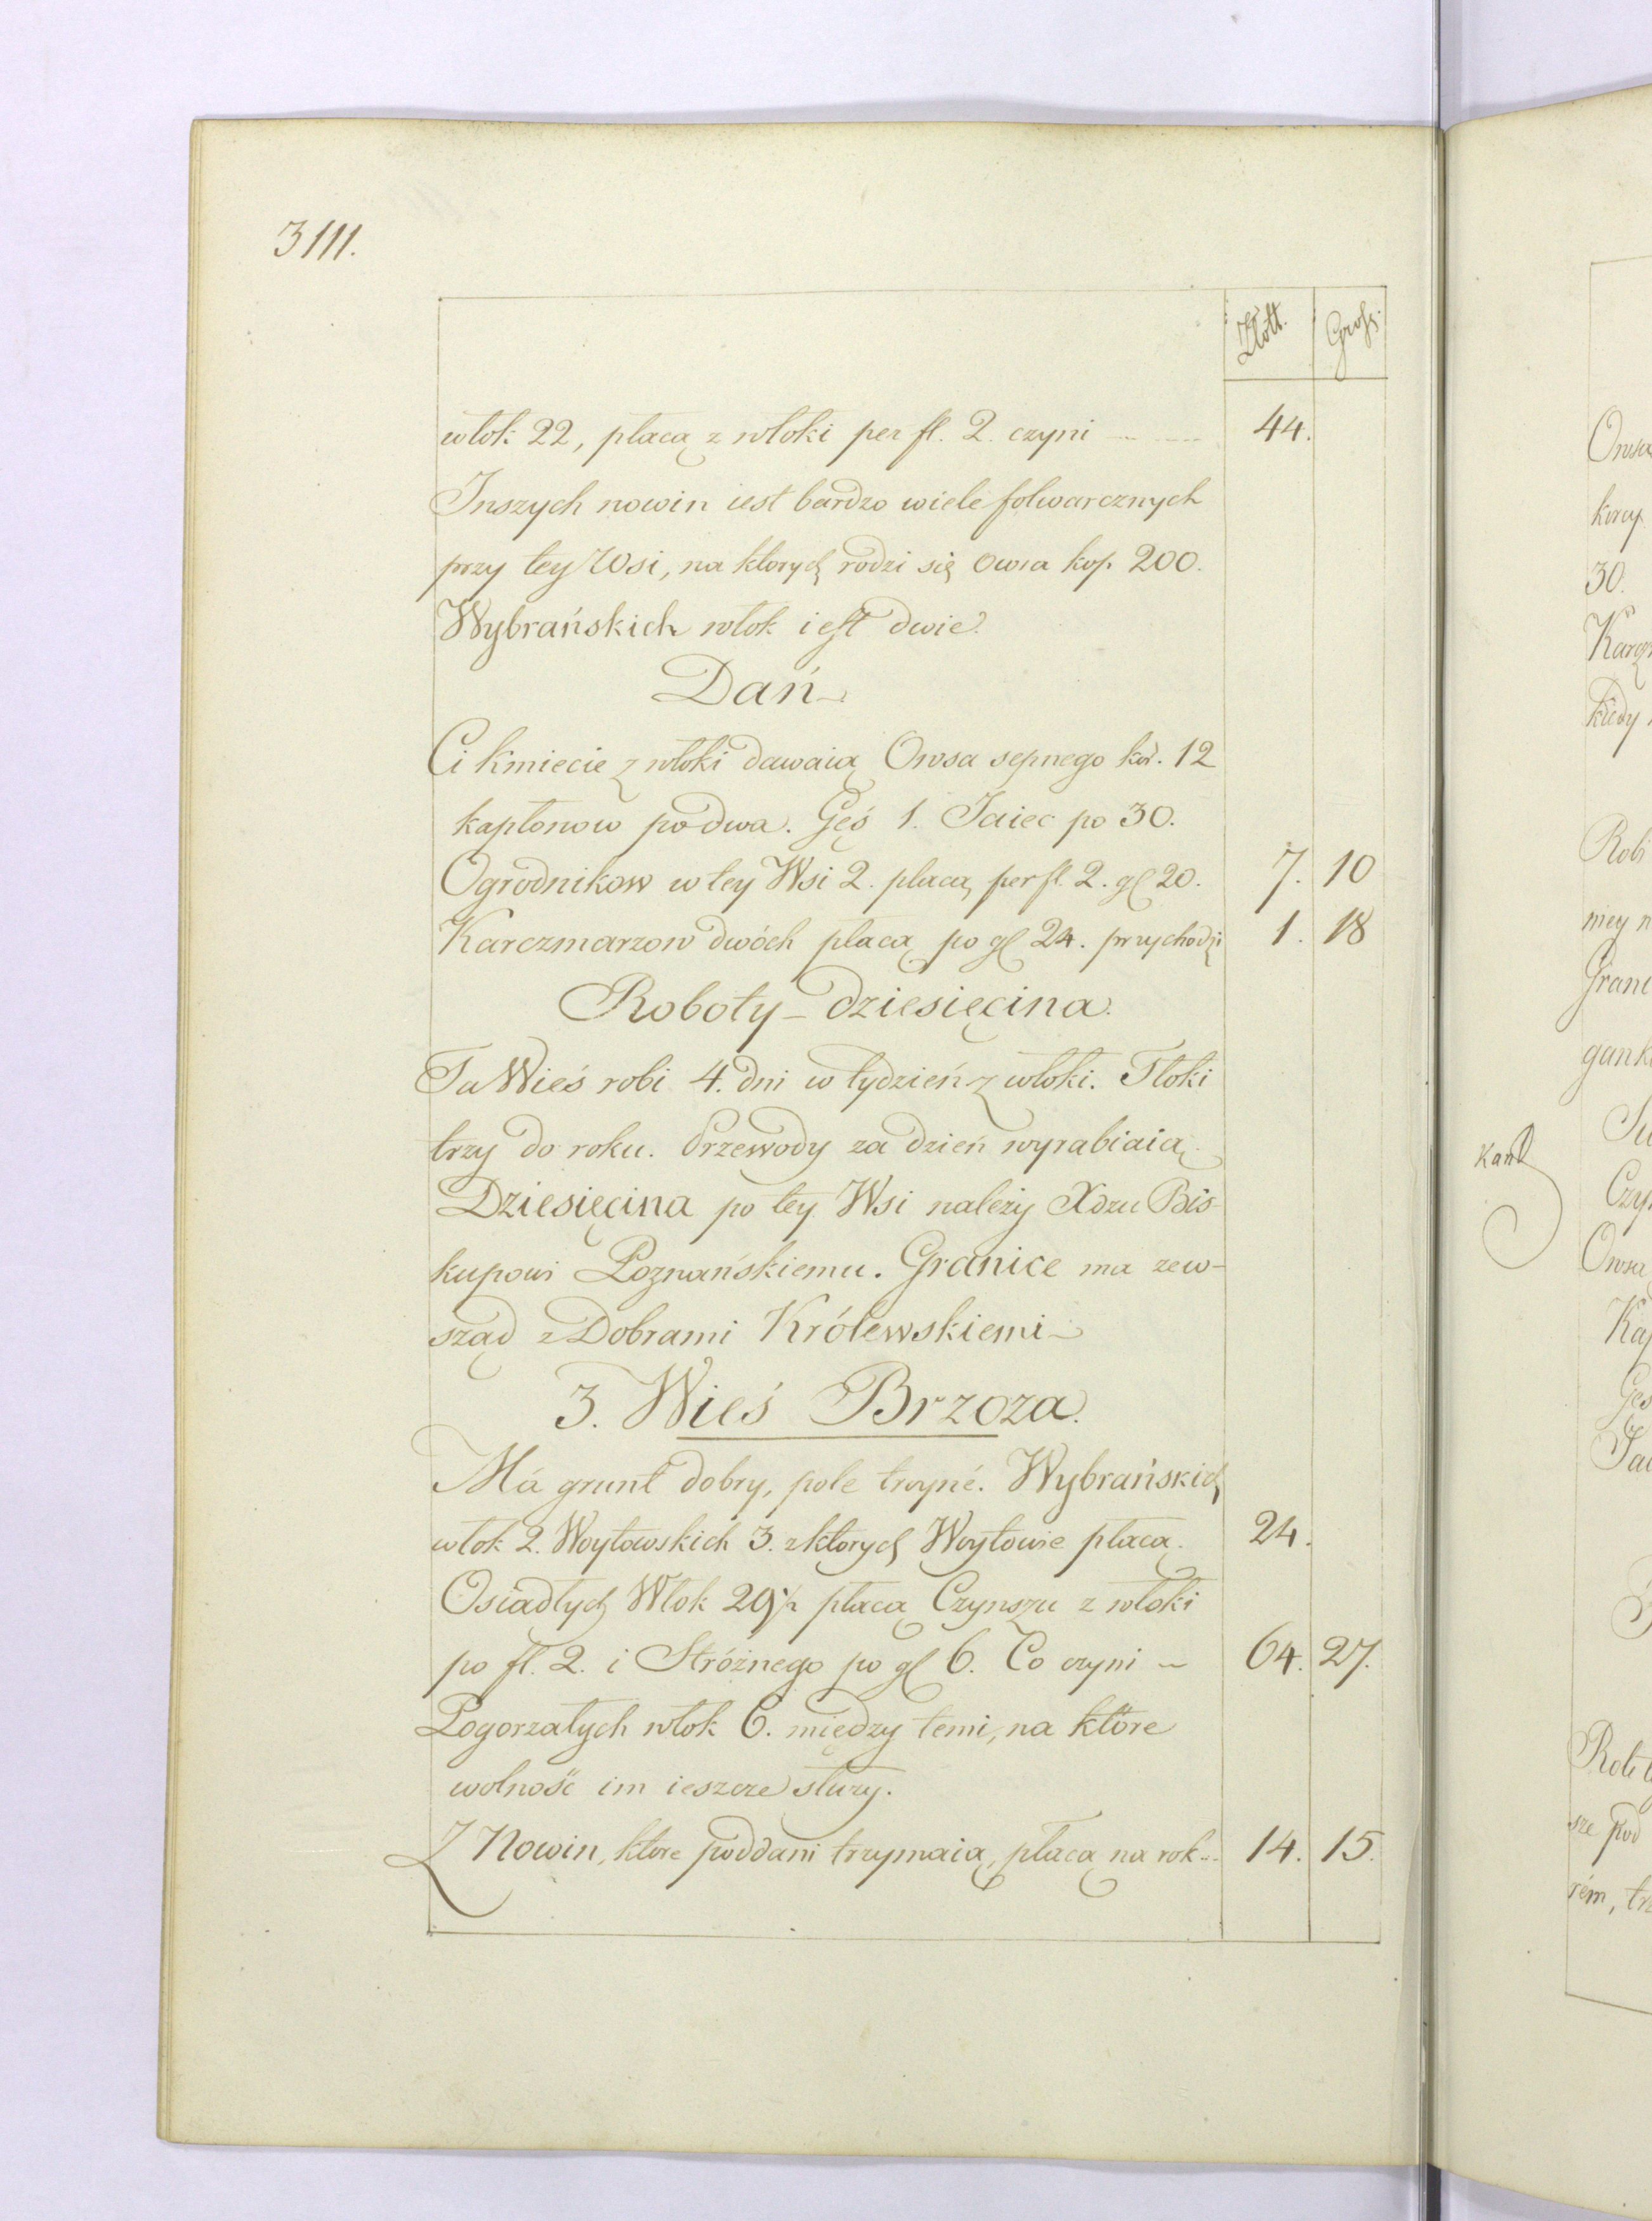 3111.
Złott. Grosz.
włok 22, płacą z włoki per fl. 2. czyni 44.
Inszych nowin iest bardzo wiele folwarcznych
przy tey Wsi, na ktorych rodzi się Owsa kop. 200.
Wybrańskich włok iest dwie.
Dań
Ci kmiecie z włoki dawaią Owsa sepnego kor. 12
kapłonow po dwa. Gęś 1. Jaiec po 30.
Ogrodnikow w tey Wsi 2. płacą per fl. 2. gl 20. 7. 10
Karczmarzow dwóch płacą po gl 24. przychodzi 1. 18
Roboty - dziesięcina.
Ta Wieś robi 4. dni w tydzień z włoki. Tłoki
trzy do roku. Przewody za dzień wyrabiaią.
Dziesięcina po tey Wsi należy Xdzu Bis-
kupowi Poznańskiemu. Granice ma zew-
sząd z Dobrami Królewskiemi
3. Wieś Brzoza.
Má grunt dobry, pole troyné. Wybrańskich
włok 2. Woytowskich 3. z ktorych Woytowie płacą. 24.
Osiadłych Włok 29½ płacą Czynszu z włoki
po fl. 2. i Stróżnego po gl 6. Co czyni 64. 27.
Pogorzałych włok 6. między temi, na które
wolność im ieszcze służy.
Z Nowin, które poddani trzymaią, płacą na rok 14. 15.
Owsa
30.
Robi
mey
gank
Owsa
rém,